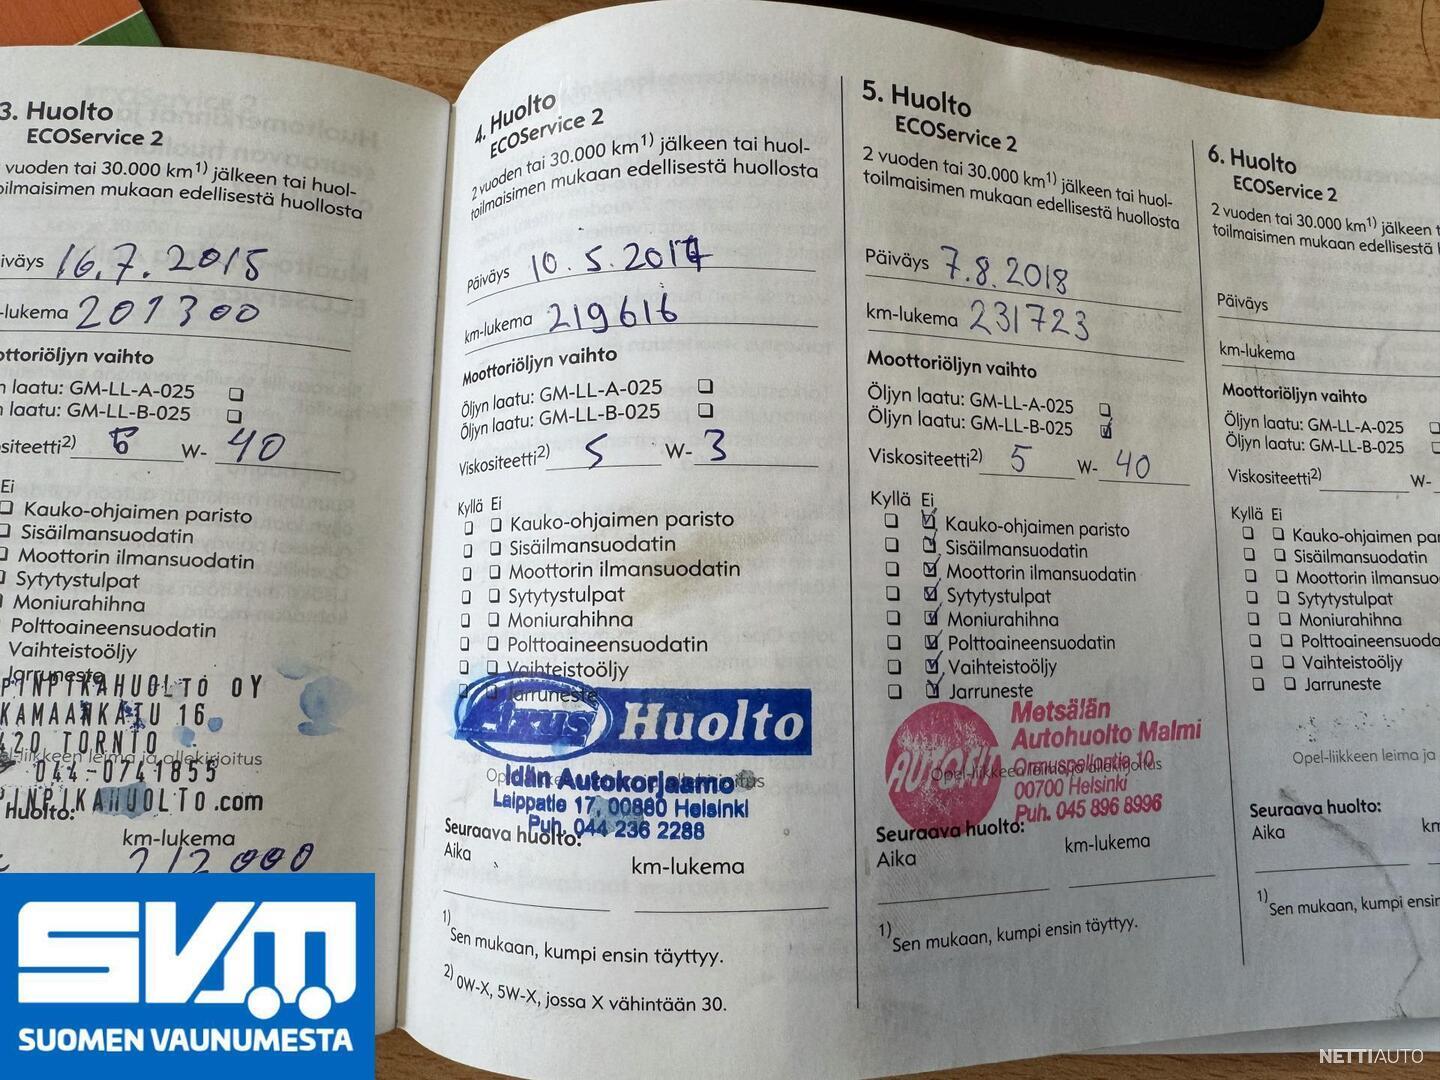 3. Huolto
ECOService 2
vuoden tai 30.000 km1) jälkeen tai huol-
toilmaisimen mukaan edellisestä huollosta
16.7.2015
-lukema 201300
oottoriöljyn vaihto
n laatu: GM-LL-A-025
n laatu: GM-LL-B-025
siteetti2) 5 W- 40
Ei
Kauko-ohjaimen paristo
Sisäilmansuodatin
Moottorin ilmansuodatin
Sytytystulpat
Moniurahihna
Polttoaineensuodatin
Vaihteistoöljy
Jarruneste
PINPIKAHUOLTO OY
KAMAANKATU 16
420 TORNIO
el-liikkeen leima ja allekirjoitus
044-0741855
PINPIKAHUOLTO.com
Huolto:
km-lukema
212000
4. Huolto
ECOService 2
2 vuoden tai 30.000 km1) jälkeen tai huol-
toilmaisimen mukaan edellisestä huollosta
Päiväys 10.5.2017
km-lukema 219616
Moottoriöljyn vaihto
Öljyn laatu: GM-LL-A-025
Öljyn laatu: GM-LL-B-025
Viskositeetti2) 5 W- 3
Kyllä Ei
Kauko-ohjaimen paristo
Sisäilmansuodatin
Moottorin ilmansuodatin
Sytytystulpat
Moniurahihna
Polttoaineensuodatin
Vaihteistoöljy
Jarruneste
Huolto
Idän Autokorjaamo
Laippatie 17, 00880 Helsinki
Puh. 044 236 2288
Seuraava huolto:
Aika
km-lukema
1) Sen mukaan, kumpi ensin täyttyy.
2) 0W-X, 5W-X, jossa X vähintään 30.
5. Huolto
ECOService 2
2 vuoden tai 30.000 km1) jälkeen tai huol-
toilmaisimen mukaan edellisestä huollosta
Päiväys 7.8.2018
km-lukema 231723
Moottoriöljyn vaihto
Öljyn laatu: GM-LL-A-025
Öljyn laatu: GM-LL-B-025
Viskositeetti2) 5 W- 40
Kyllä Ei
Kauko-ohjaimen paristo
Sisäilmansuodatin
Moottorin ilmansuodatin
Sytytystulpat
Moniurahihna
Polttoaineensuodatin
Vaihteistoöljy
Jarruneste
Metsälän
Autohuolto Malmi
Ormuspellontie 10
Opel-liikkeen leima ja allekirjoitus
00700 Helsinki
Puh. 045 896 8996
Seuraava huolto:
Aika
km-lukema
1) Sen mukaan, kumpi ensin täyttyy.
6. Huolto
ECOService 2
2 vuoden tai 30.000 km1) jälkeen t
toilmaisimen mukaan edellisestä
Päiväys
km-lukema
Moottoriöljyn vaihto
Öljyn laatu: GM-LL-A-025
Öljyn laatu: GM-LL-B-025
Viskositeetti2) W-
Kyllä Ei
Kauko-ohjaimen par
Sisäilmansuodatin
Moottorin ilmansuo
Sytytystulpat
Moniurahihna
Polttoaineensuoda
Vaihteistoöljy
Jarruneste
Opel-liikkeen leima ja
Seuraava huolto:
Aika
km
1) Sen mukaan, kumpi ensin
SVM
SUOMEN VAUNUMESTA
NETTIAUTO